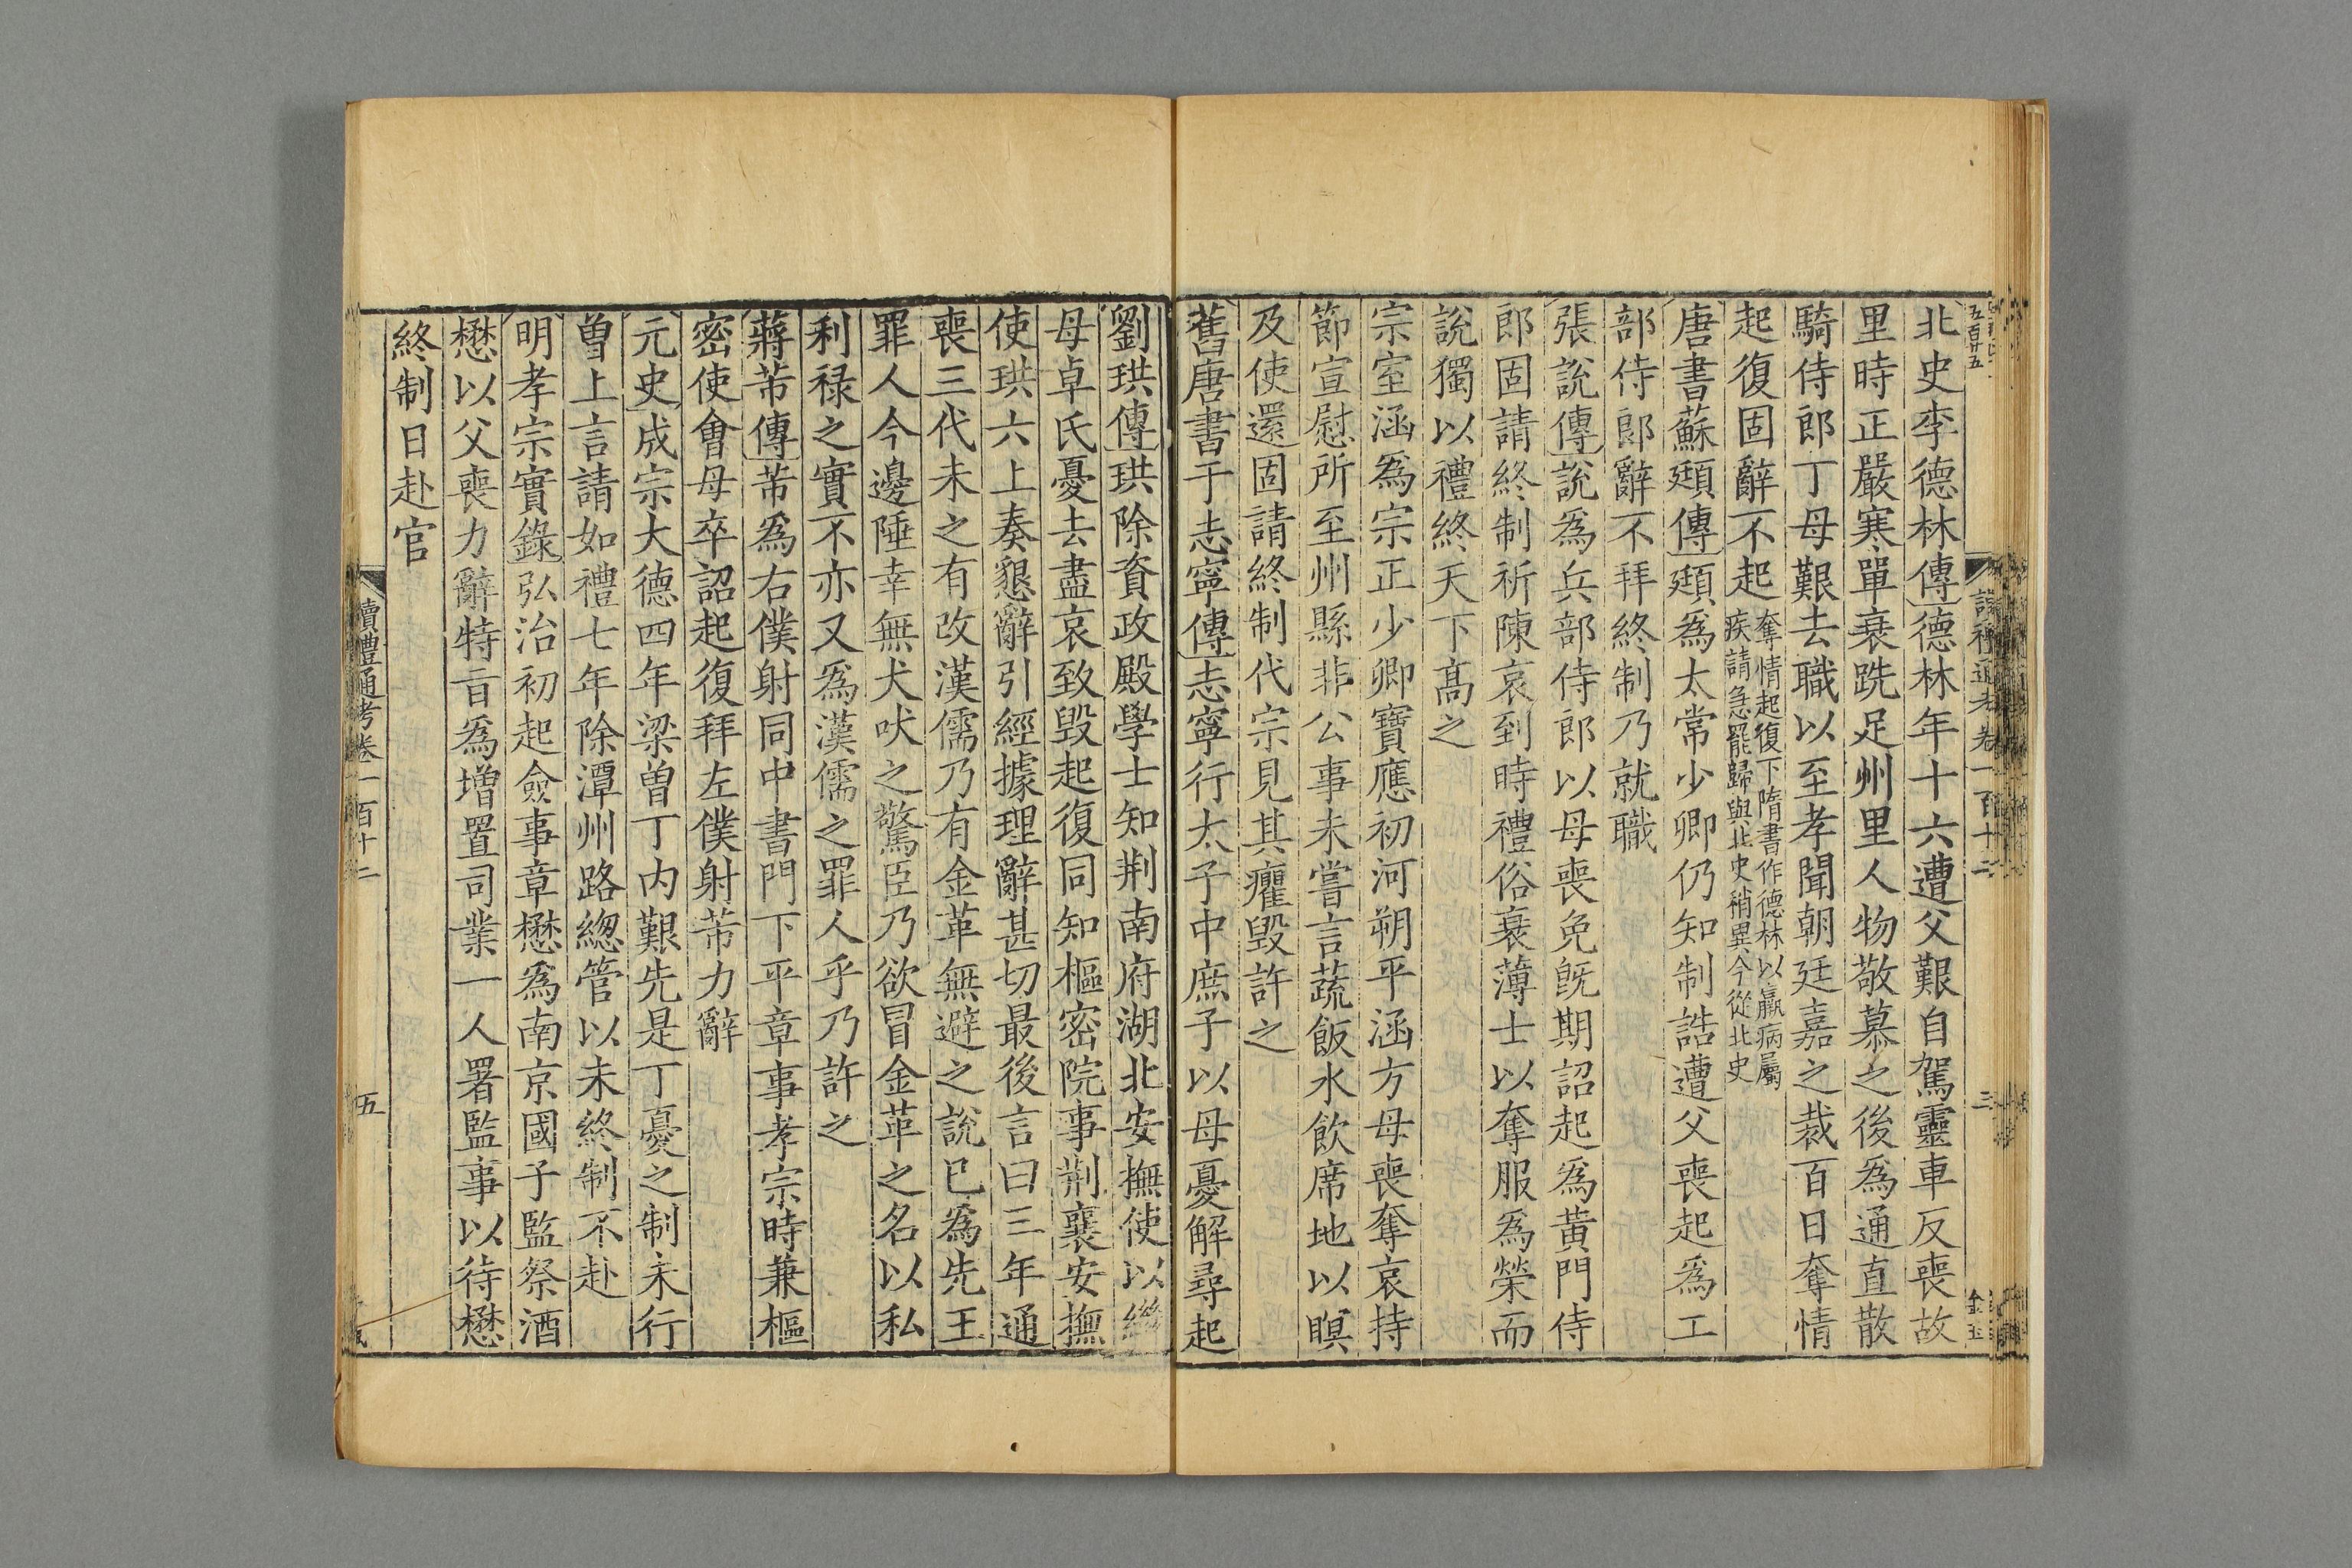 北史李德林傳德林年十六遭父艱自駕靈車反喪故
里時正嚴寒單衰跣足州里人物敬慕之後為通直散
騎侍郎丁母艱去職以至孝聞朝廷嘉之裁百日奪情
起復固辭不起奪情起復下隋書作德林以羸病屬
疾請急罷歸與北史稍異今從北史
唐書蘇頲傳頲為太常少卿仍知制誥遭父喪起為工
部侍郎辭不拜終制乃就職
張說傳說為兵部侍郎以母喪免旣期詔起為黃門侍
郎固請終制祈陳哀到時禮俗衰薄士以奪服為榮而
說獨以禮終天下髙之
宗室涵為宗正少卿寶應初河朔平涵方母喪奪哀持
節宣慰所至州縣非公事未嘗言蔬飯水飲席地以瞑
及使還固請終制代宗見其癯毀許之
舊唐書于志寧傳志寧行太子中庶子以母憂解尋起
劉珙傳珙除資政殿學士知荆南府湖北安撫使以繼
母卓氏憂去盡哀致毀起復同知樞密院事荆襄安撫
使珙六上奏懇辭引經據理辭甚切最後言曰三年通
喪三代未之有改漢儒乃有金革無避之說已為先王
罪人今邊陲幸無犬吠之驚臣乃欲冒金革之名以私
利祿之實不亦又為漢儒之罪人乎乃許之
蔣芾傳芾為右僕射同中書門下平章事孝宗時兼樞
密使會母卒詔起復拜左僕射芾力辭
元史成宗大德四年梁曾丁内艱先是丁憂之制未行
曾上言請如禮七年除潭州路緫管以未終制不赴
明孝宗實錄弘治初起僉事章懋為南京國子監祭酒
懋以父喪力辭特旨為增置司業一人署監事以待懋
終制日赴官
讀禮通考卷一百十二
五
讀禮通考卷一百十二
三
五百廿五
金玉